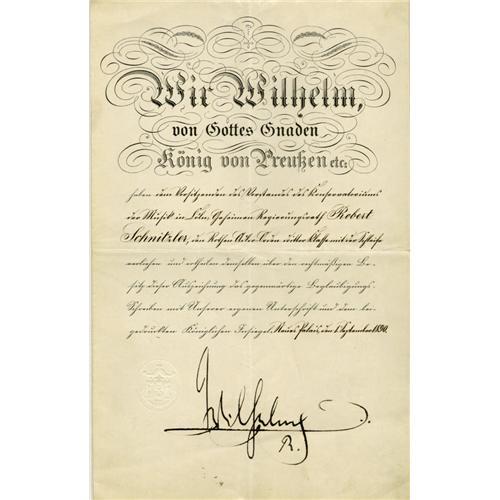 Wir Wilhelm,
von Gottes Gnaden
König von Preußen etc.
haben dem Vorsitzenden des Vorstandes des Konservatoriums
der Musik in Cöln, Geheimen Regierungsrath Robert
Schnitzler, den Rothen Adler-Orden dritter Klasse mit der Schleife
verliehen und ertheilen demselben über den rechtmäßigen Be-
sitz dieser Auszeichnung das gegenwärtige Beglaubigungs-
Schreiben mit Unserer eigenen Unterschrift und dem bei-
gedruckten Königlichen Insiegel. Neues Palais, den 1. September 1890.
Wilhelm
R.